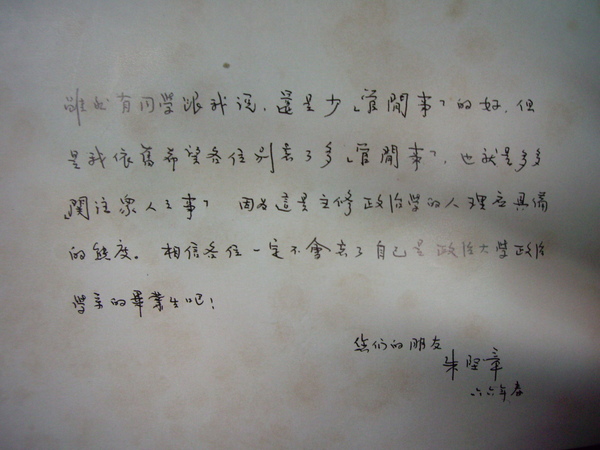 雖然有同學跟我說，還是少「管閒事」的好，但
是我依舊希望各位別忘了多「管閒事」，也就是多多
關注眾人之事」 因為這是主修政治學的人理應具備
的態度。相信各位一定不會忘了自己是政治大學政治
學系的畢業生吧！
您们的朋友
朱堅章
六六年春